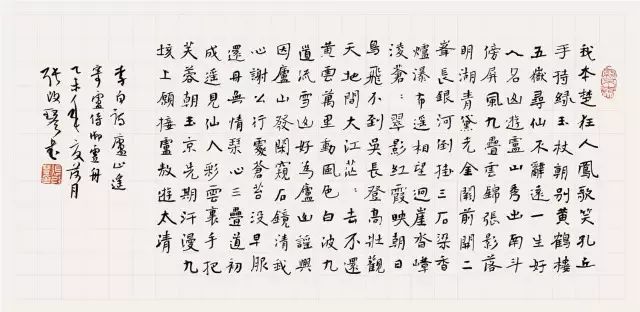 我本楚狂人鳳歌笑孔丘
手持緑玉杖朝别黄鶴樓
五嶽尋仙不辭遠一生好
入名山遊廬山秀出南斗
傍屏風九疊雲錦張影落
明湖青黛光金闕前開二
峯長銀河倒挂三石梁香
爐瀑布遥相望迴崖沓嶂
凌蒼：翠影紅霞映朝日
鳥飛不到吳長登高壯觀
天地間大江茫：去不還
黄雲萬里動風色白波九
道流雪山好為廬山謡興
因廬山發閑窺石鏡清我
心謝公行處蒼苔没早服
還丹無情琴心三疊道初
成遥見仙人彩雲裏手把
芙蓉朝玉京先期汗漫九
垓上願接盧敖遊太清
李白詩廬山謡
寄盧侍御虚舟
乙未年夏荷月
張改琴書